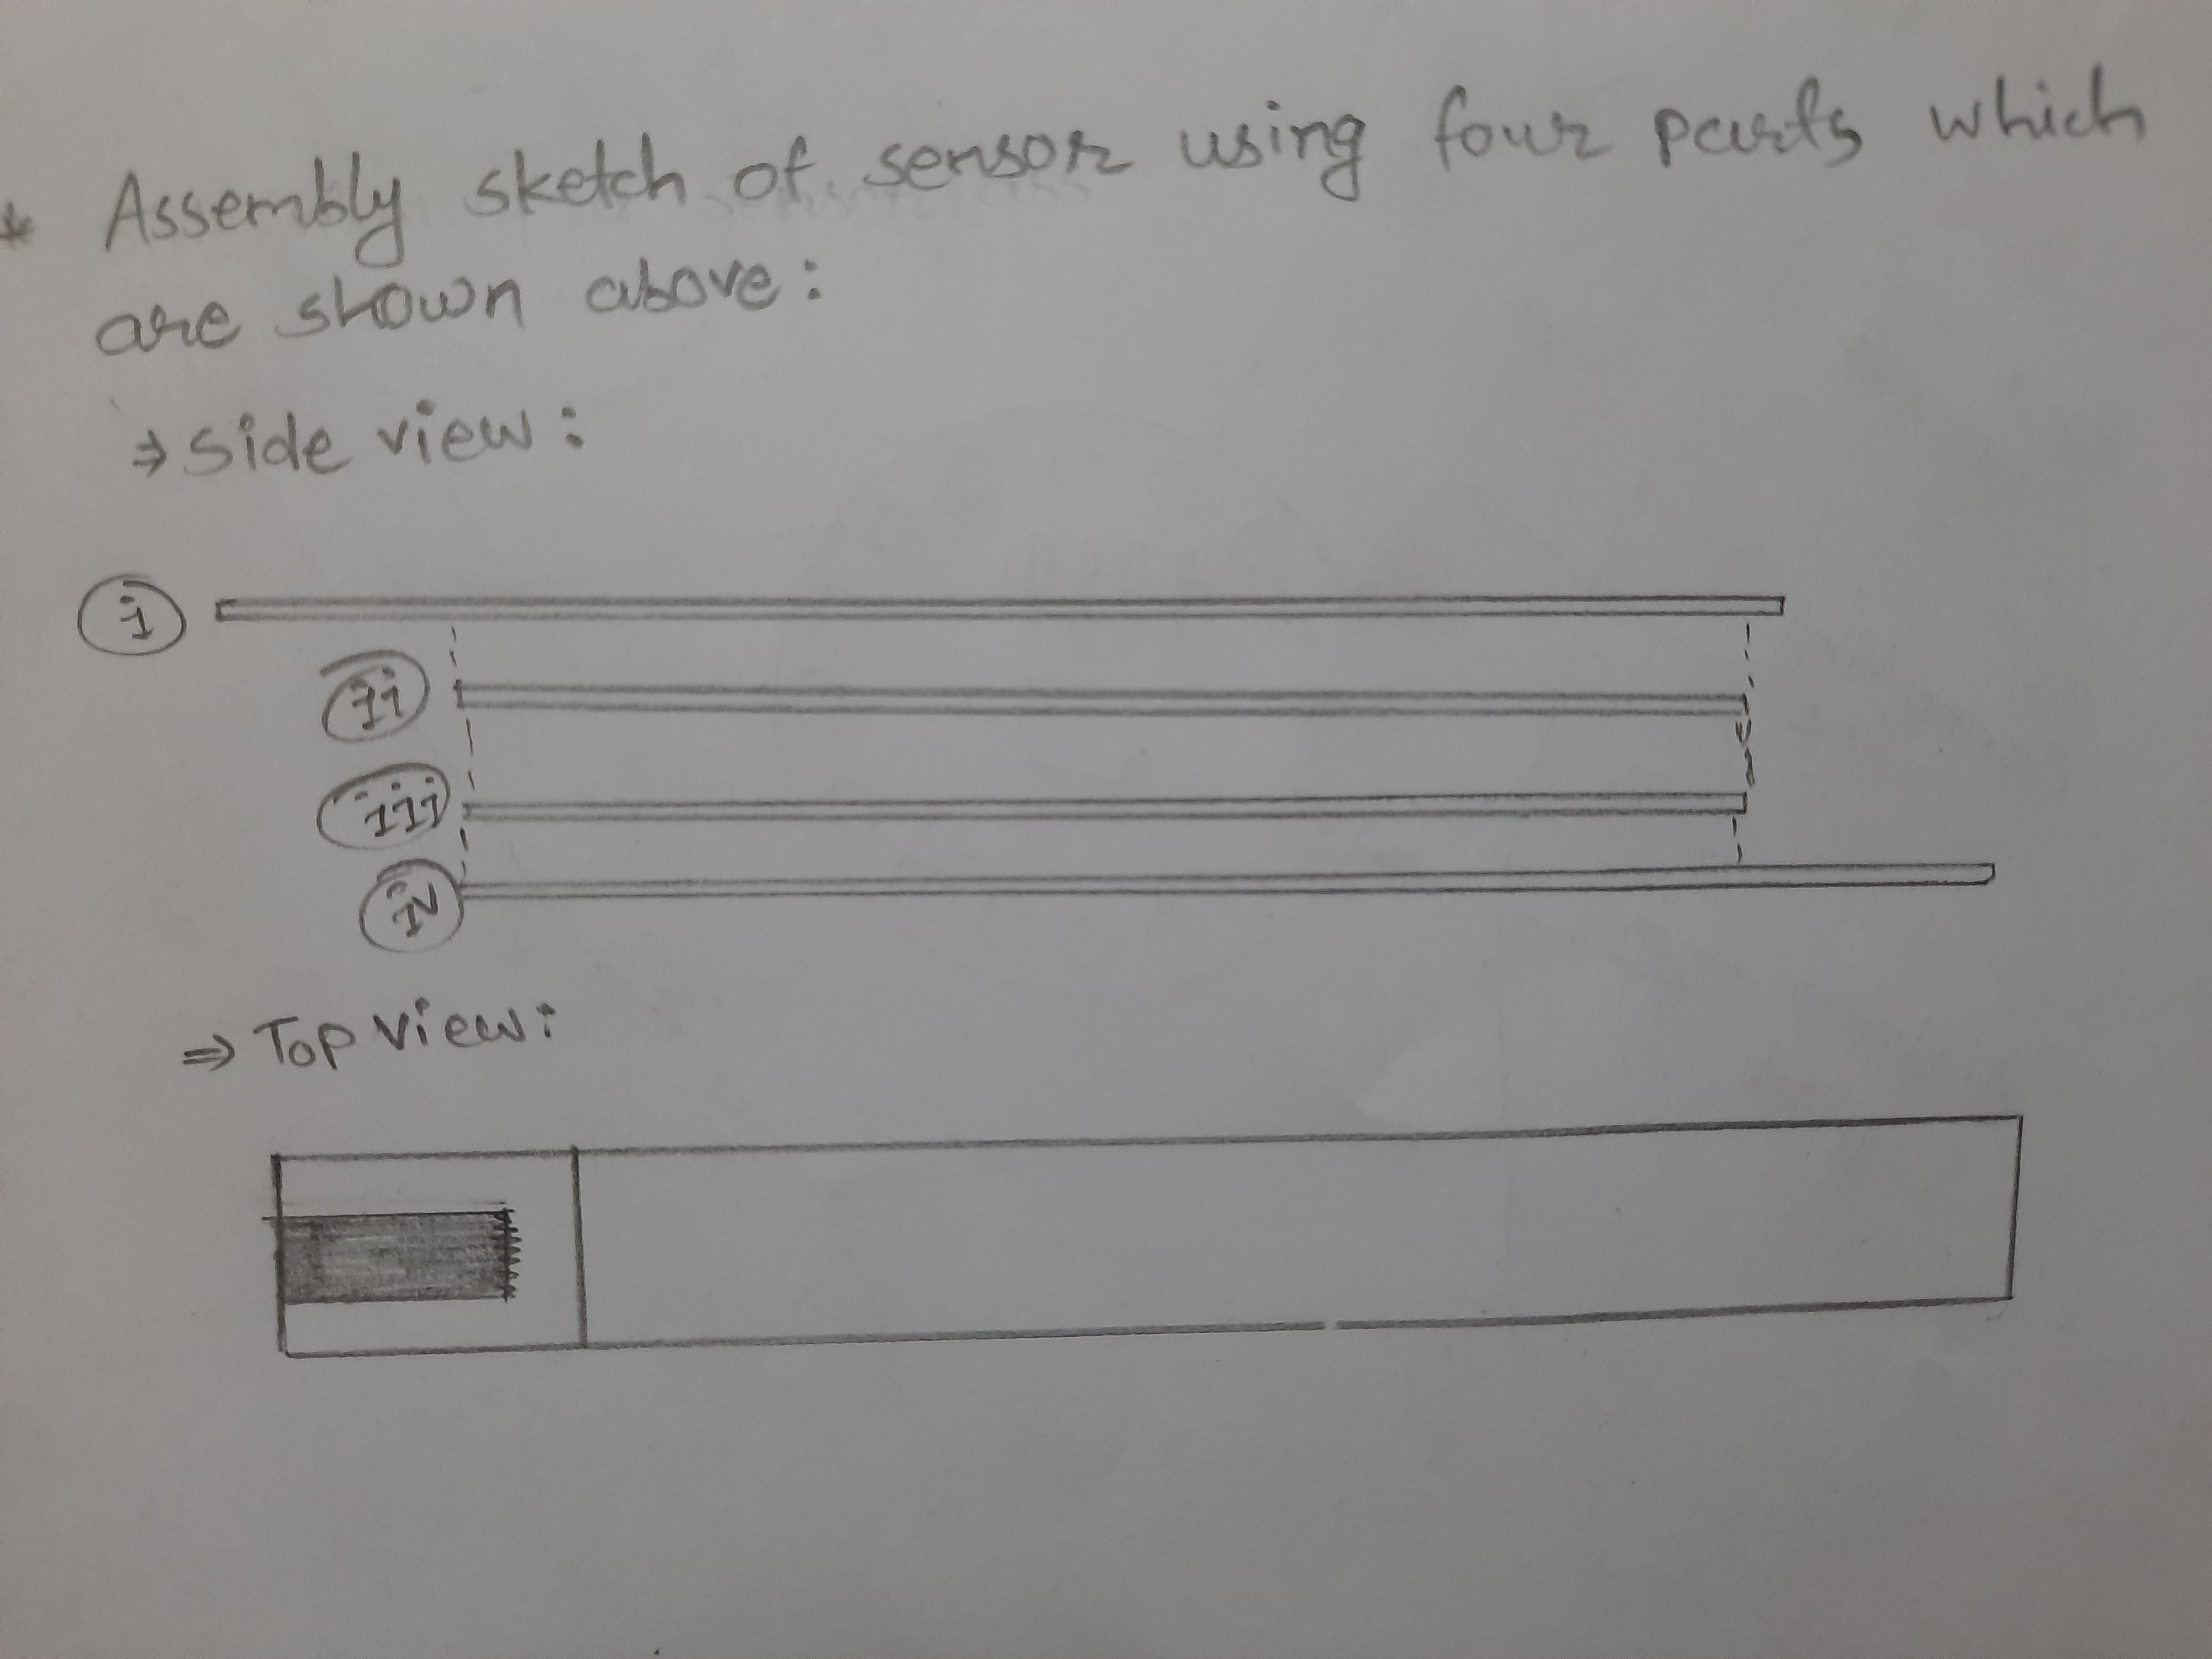 * Assembly sketch of sensor using four parts which
are shown above:
⇒ Side view:
i
ii
iii
iv
⇒ Top view: